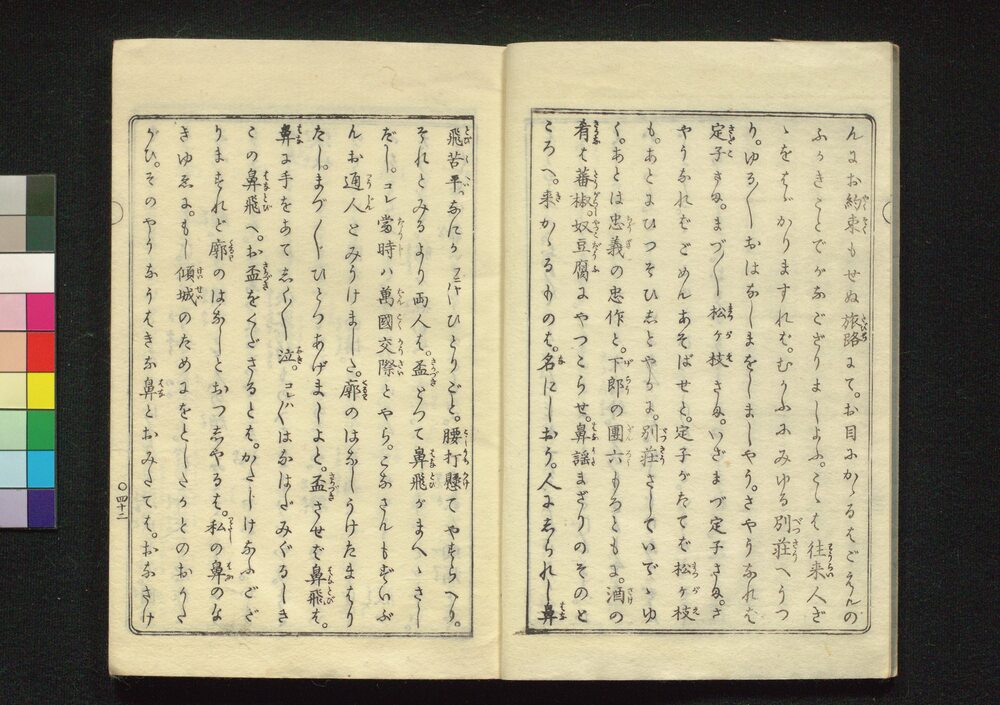 んにお約束もせぬ旅路にて。お目にかゝるはごえんの
ふかきことでがなござりましよふ。こゝは往来人ぎ
ゝをはゞかりますれば。むかふにみゆる別荘へうつ
り。ゆる〳〵おはなしまをしましやう。さやうなれば
定子さま。まづ〳〵松ヶ枝さま。いざまづ定子さま。さ
やうなればごめんあそばせと。定子がたてば松ヶ枝
も。あとにひつそひしとやかに。別荘さしていでゝゆ
く。あとは忠義の忠作と。下郎の團六もろともに。酒の
肴は蕃椒。奴豆腐にやつこらせ。鼻謡まざりのそのと
ころへ。来かゝるものは。名にしおう。人にしられし鼻
飛苦平なにかひとりごと。腰打懸てやすらへり。
それとみるより両人は。盃とつて鼻飛がまへゝさし
だし。コレ當時ハ萬國交際とやら。こなさんもずいぶ
んお通人とみうけました。廓のはなしうけたまはり
たし。まづ〳〵ひとつあげましよと。盃させば鼻飛は。
鼻に手をあてしく〳〵泣。コレハ〳〵はなはだみぐるしき
この鼻飛へ。お盃をくださるとは。かたじけなふござ
りますれど廓のはなしとおつしやるは。私の鼻のな
きゆゑに。もし傾城のためにをとしたかとのおうた
がひ。そのやうなうはきな鼻とおみたては。おなさけ
〇四十二